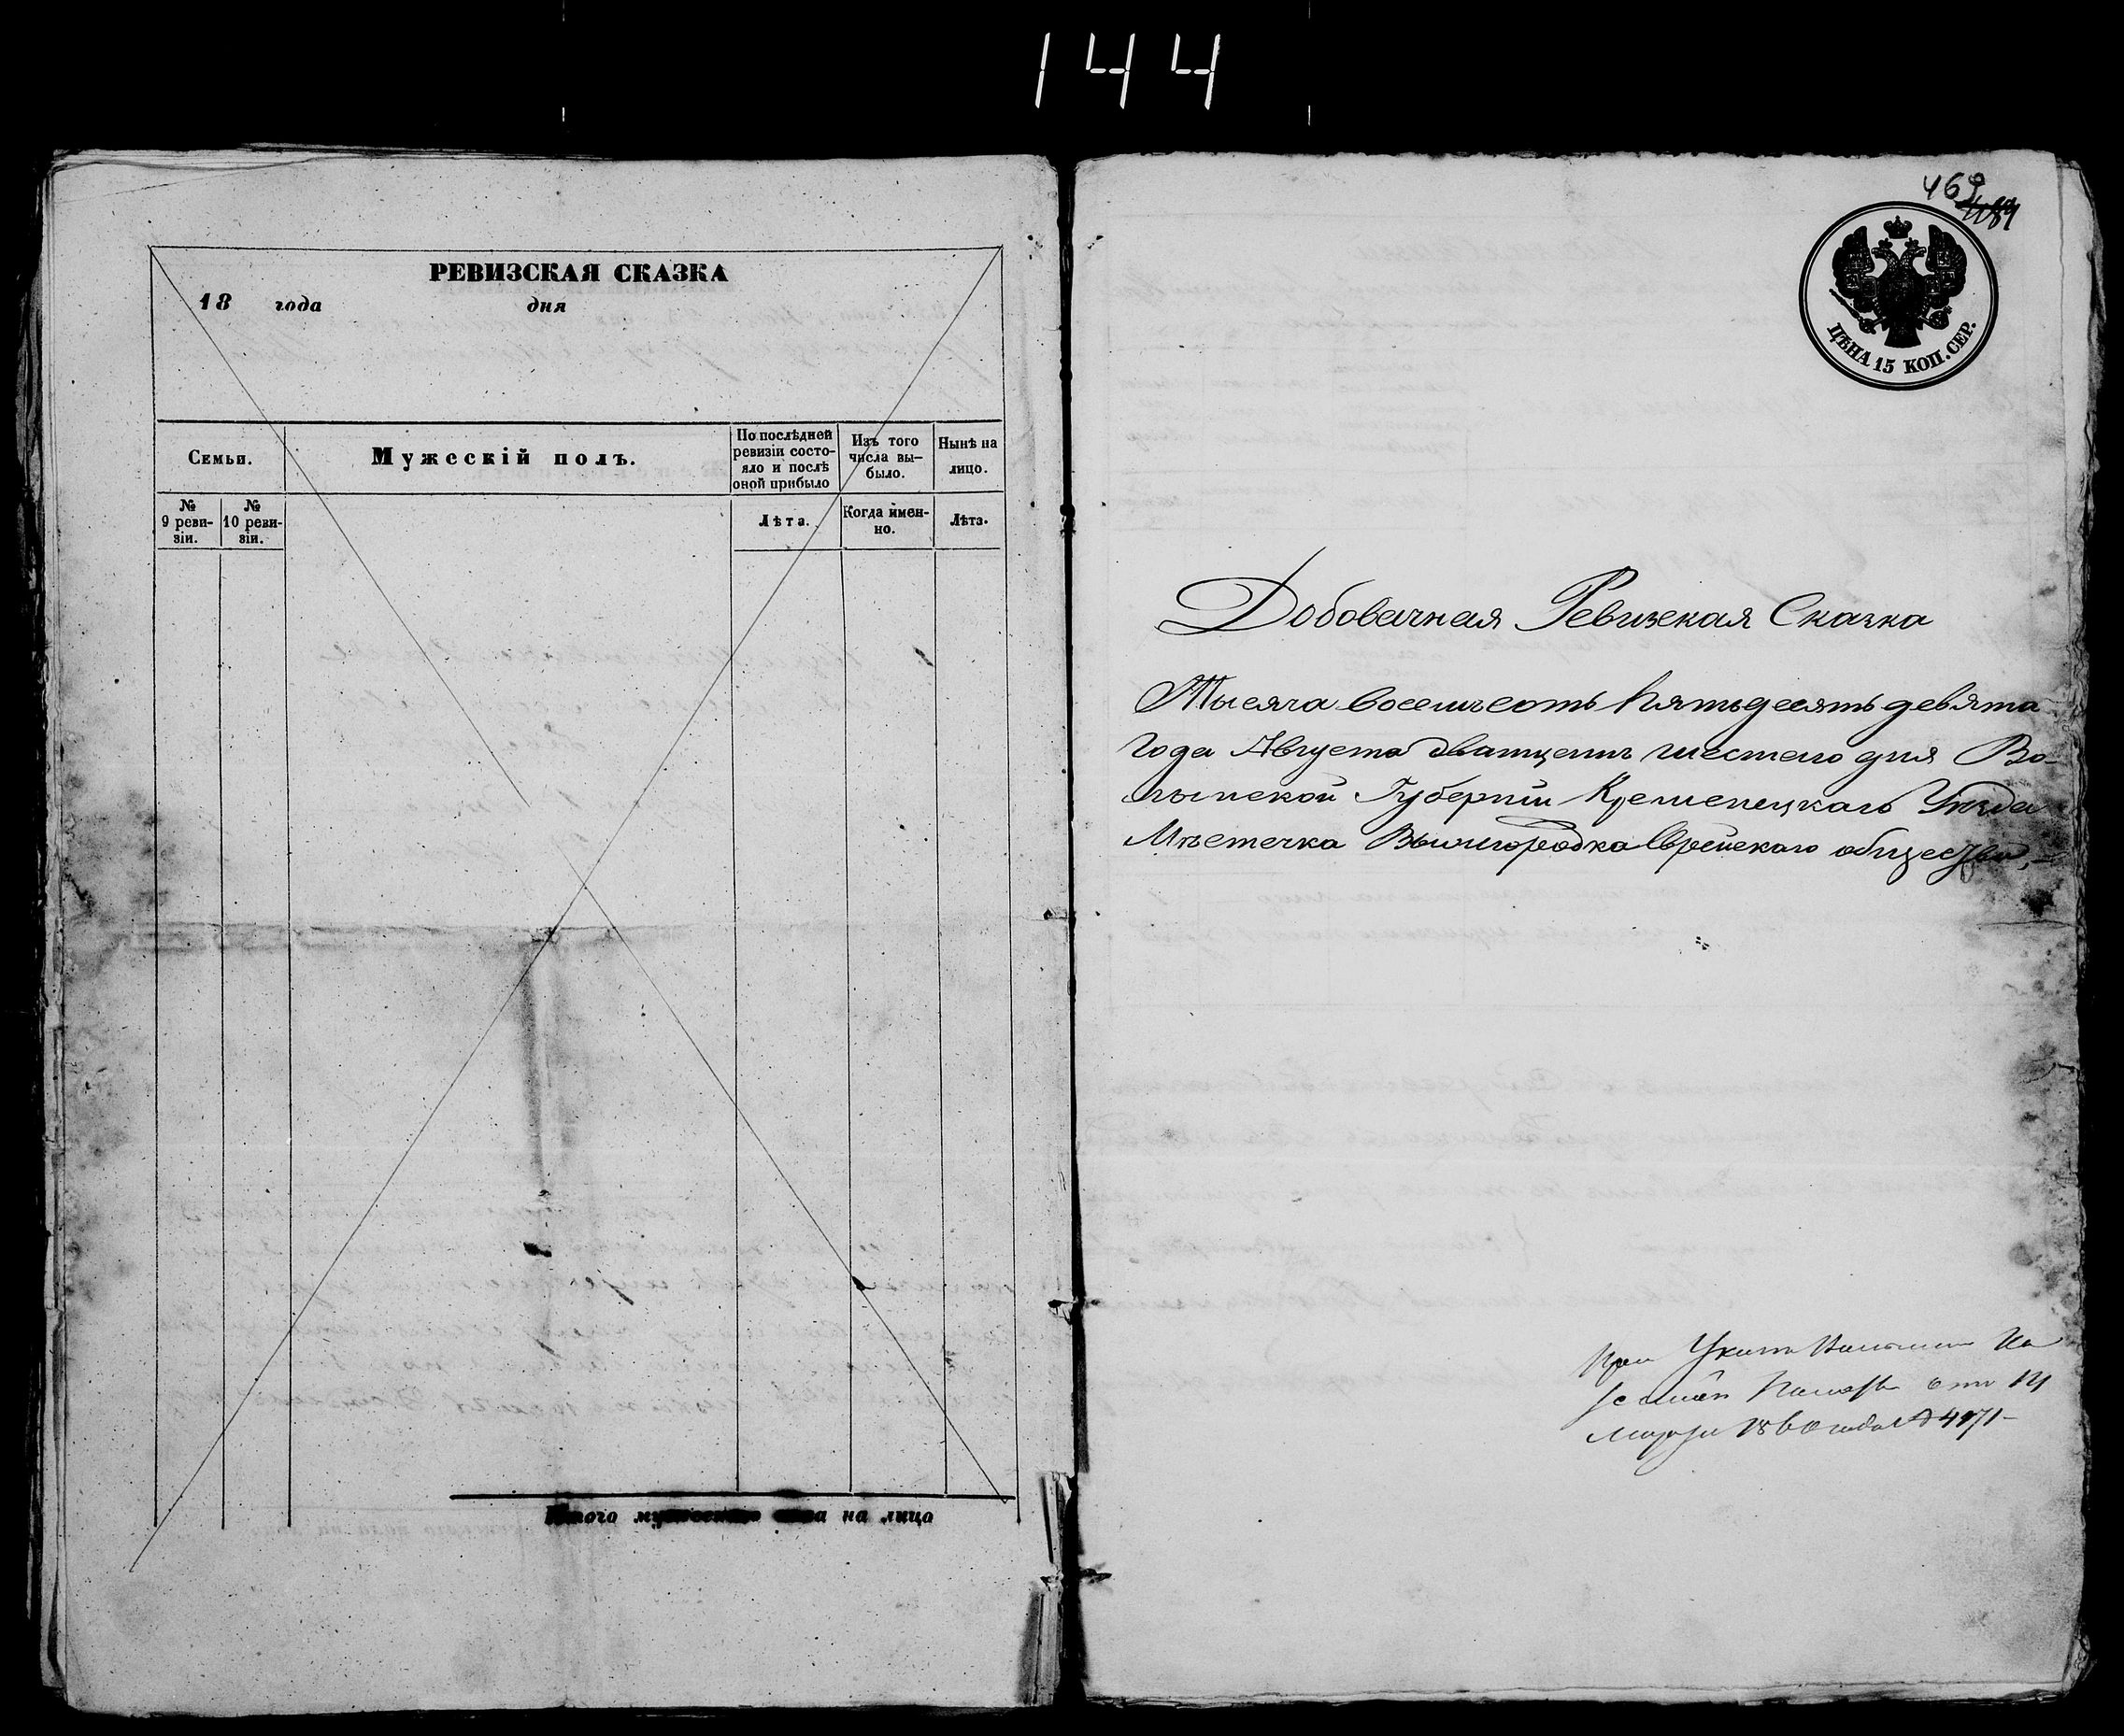 144
РЕВИЗСКАЯ СКАЗКА
18 года дня
Семьи.
Мужескій полъ.
По послѣдней ревизіи состо-
яло и послѣ
оной прибыло
Изъ того
числа вы-
было.
Нынѣ на
лицо.
№
9 реви-
зіи.
№
10 реви-
зіи.
Лѣта.
Когда имен-
но.
Лѣта.
Итого мужескаго пола на лицо
469
489
ЦѢНА 15 КОП. СЕР.
Добовачная Ревизская Сказка
Тысяча восемъсотъ Пятьдесятъ девята
Года Августа дватцать шестаго дня Во-
лынской Губерніи Кременецкаго Уѣзда
Мѣстечка Вышгородка Еврейскаго общества,
При Указѣ Волынской Ка
Палаты отъ 14
Марта 1860 года № 4171